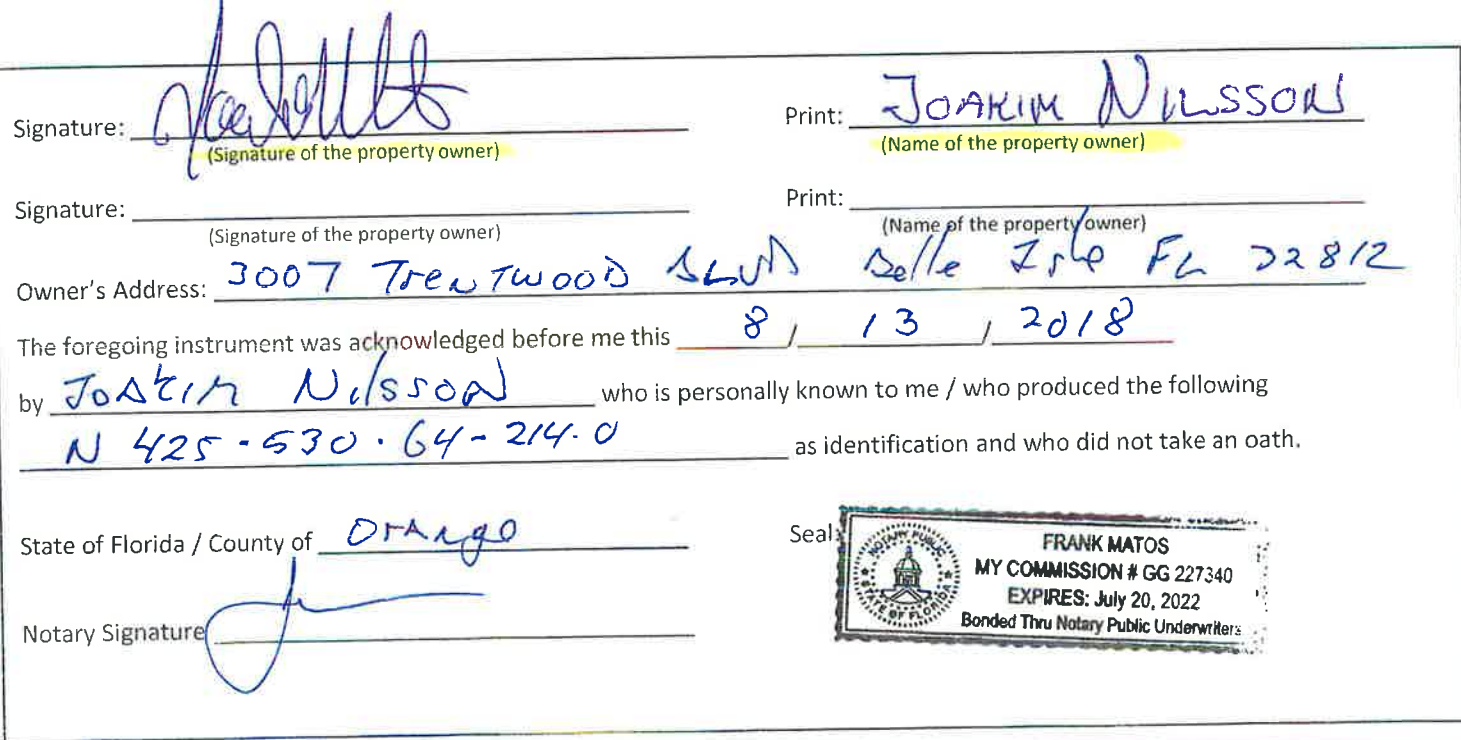 Signature: Print: JOAKIM NILSSON
(Signature of the property owner) (Name of the property owner)
Signature: Print:
(Signature of the property owner) (Name of the property owner)
Owner's Address: 3007 TrenTWOOD BLVD Belle Isle FL 32812
The foregoing instrument was acknowledged before me this 8 / 13 / 2018
by JOAKIM NilSSON who is personally known to me / who produced the following
N 425-530-64-214-0 as identification and who did not take an oath.
State of Florida / County of Orange Seal:
NOTARY PUBLIC
STATE OF FLORIDA
FRANK MATOS
MY COMMISSION # GG 227340
EXPIRES: July 20, 2022
Bonded Thru Notary Public Underwriters
Notary Signature